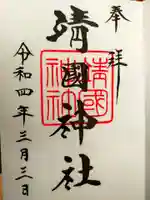 奉拝
靖國神社
靖國神社
令和四年三月三日